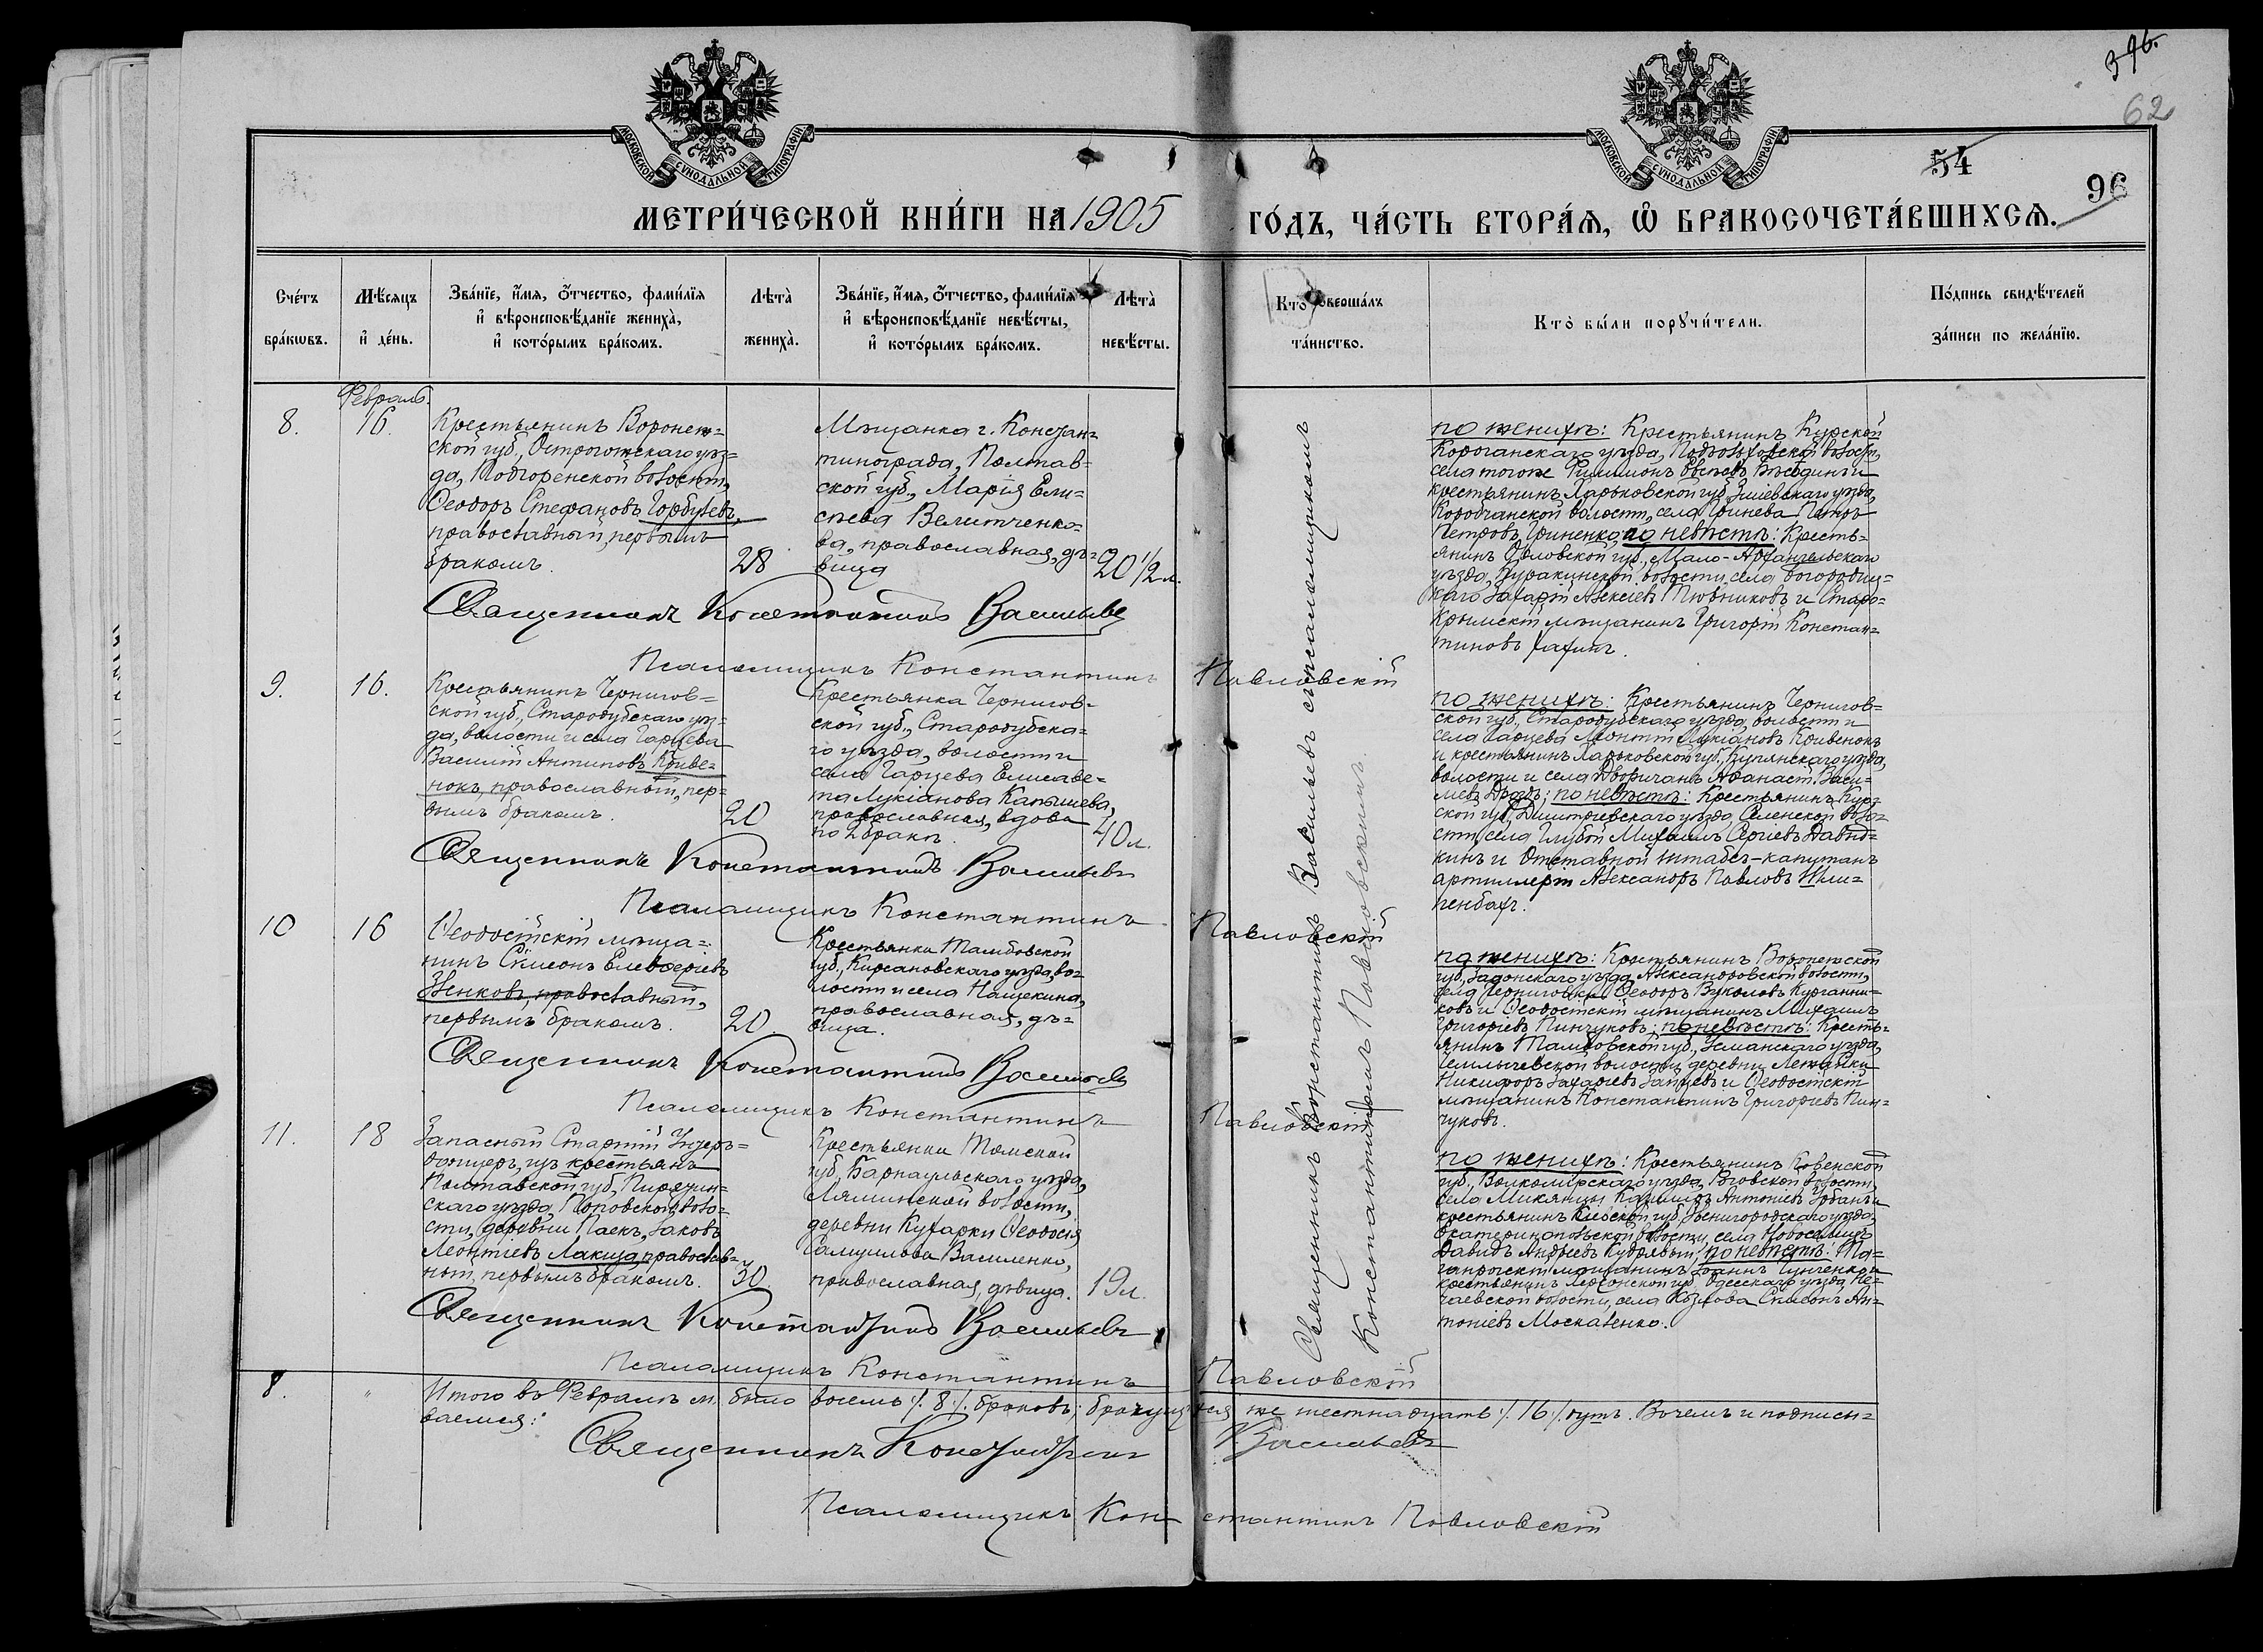 396.
62
МОСКОВСКОЙ СѴНОДАЛЬНОЙ ТИПОГРАФІИ
МОСКОВСКОЙ СѴНОДАЛЬНОЙ ТИПОГРАФІИ
54
96
МЕТРИ́ЧЕСКОЙ КНИ́ГИ НА 1905 ГО́ДЪ, ЧА́СТЬ ВТОРА́Ѧ, Ѡ҆ БРАКОСОЧЕТА́ВШИХСѦ.
Сче́тъ бра́кѡвъ.
Мѣ́сяцъ и҆ де́нь.
Зва́нїе, и҆́мя, ѻ҆́тчество, фами́лїя
и҆ вѣроисповѣ́данїе жениха̀,
и҆ кото́рымъ бра́комъ.
Лѣта̀ жениха̀.
Зва́нїе, и҆́мя, ѻ҆́тчество, фами́лїя
и҆ вѣроисповѣ́данїе невѣ́сты,
и҆ кото́рымъ бра́комъ.
Лѣта̀ невѣ́сты.
Кто̀ соверша́лъ
та́инство.
Кто̀ бы́ли порꙋчи́тели.
По́дпись свидѣ́телей
за́писи по жела́нїю.
Февраль.
8.
16.
Крестьянинъ Воронеж=
ской губ., Острогожскаго уѣз=
да, Подгоренской волости,
Ѳеодоръ Стефановъ Горбулевъ,
православный, первымъ
бракомъ.
28
Мѣщанка г. Констан=
тинограда, Полтав=
ской губ., Марія Ели=
сѣева Велитченко=
ва, православная, дѣ=
вица
20 1/2 л.
Священникъ Константинъ Васильевъ
Псаломщикъ Константинъ Павловскій
по женихѣ: Крестьянинъ Курской
Корочанскаго уѣзда,
села тогоже
крестьянинъ Харьковской губ., Зміевскаго уѣзда,
волости, села Петръ
Петровъ Гриненко, по невѣстѣ: Кресть=
янинъ Орловской губ., Мало-Архангельскаго
уѣзда, Куракинской волости, села Богородиц=
каго Захарій Алексіевъ и Старо=
Крымскій мѣщанинъ Григорій Констан=
тиновъ
Священникъ Константинъ Васильевъ съ псаломщикомъ
Константиномъ Павловскимъ.
9.
16.
Крестьянинъ Чернигов=
ской губ., Стародубскаго уѣз=
да, волости и села Гарцева
Василій Антиповъ Криве=
нокъ, православный, пер=
вымъ бракомъ.
20
Крестьянка Чернигов=
ской губ., Стародубска=
го уѣзда, волости и
села Гарцева Елисаве=
та Лукіанова Капышева,
православная, вдова
по 2 бракѣ.
40 л.
Священникъ Константинъ Васильевъ
Псаломщикъ Константинъ Павловскій
по женихѣ: Крестьянинъ Чернигов=
ской губ., Стародубскаго уѣзда, волости и
села Гарцева Леонтій Лукіановъ Кривенокъ
и крестьянинъ Харьковской губ., Купянскаго уѣзда,
волости и села Аѳанасій Васи=
льевъ Дроздъ; по невѣстѣ: Крестьянинъ Кур=
ской губ., Димитріевскаго уѣзда, воло=
сти, села Михаилъ Сергіевъ Давид=
кинъ и Отставной штабсъ-капитанъ
артиллеріи Александръ Павловъ Шли=
пенбахъ.
10
16
Ѳеодосійскій мѣща=
нинъ Сѵмеонъ Елевѳеріевъ
Зѣнковъ, православный,
первымъ бракомъ.
20.
Крестьянка Тамбовской
губ., Кирсановскаго уѣзда, во=
лости и села Нащекина,
православная, дѣ=
вица.
Священникъ Константинъ Васильевъ
Псаломщикъ Константинъ Павловскій
по женихѣ: Крестьянинъ Воронежской
губ., Задонскаго уѣзда, Александровской волости,
села Ѳеодоръ Вуколовъ Курганни=
ковъ и Ѳеодосійскій мѣщанинъ Михаилъ
Григоріевъ Пинчуковъ; по невѣстѣ: Кресть=
янинъ Тамбовской губ., Усманскаго уѣзда,
волости, деревни
Никифоръ Захаріевъ и Ѳеодосійскій
мѣщанинъ Константинъ Григоріевъ Пин=
чуковъ.
11.
18
Запасный Старшій Унтеръ=
Офицеръ, изъ крестьянъ
Полтавской губ., Пирятин=
скаго уѣзда, Поповской воло=
сти, деревни Паекъ, Іаковъ
Леонтіевъ Лакиза, православ=
ный, первымъ бракомъ.
30.
Крестьянка Томской
губ., Барнаульскаго уѣзда,
Ляминской волости,
деревни Кухарки Ѳеодосія
Самуилова Василенко,
православная, дѣвица.
19 л.
Священникъ Константинъ Васильевъ
Псаломщикъ Константинъ Павловскій
по женихѣ: Крестьянинъ Ковенской
губ., Волкомирскаго уѣзда, волости,
села Антоніевъ Урбанъ и
крестьянинъ Кіевской губ., Звенигородскаго уѣзда,
Екатеринопольской волости, села
Давидъ Андреевъ Кудрявый, по невѣстѣ: Та=
ганрогскій мѣщанинъ Іоаннъ и
крестьянинъ Херсонской губ., Одесскаго уѣзда, Не=
чаевской волости, села Козлова Сѵмеонъ Ан=
тоніевъ Москаленко.
8.
"
Итого въ Февралѣ м. было восемь /.8./ браковъ; брачущихся же шестнадцать /.16./ душъ. В чемъ и подписы=
ваемся:
Священникъ Константинъ Васильевъ
Псаломщикъ Константинъ Павловскій